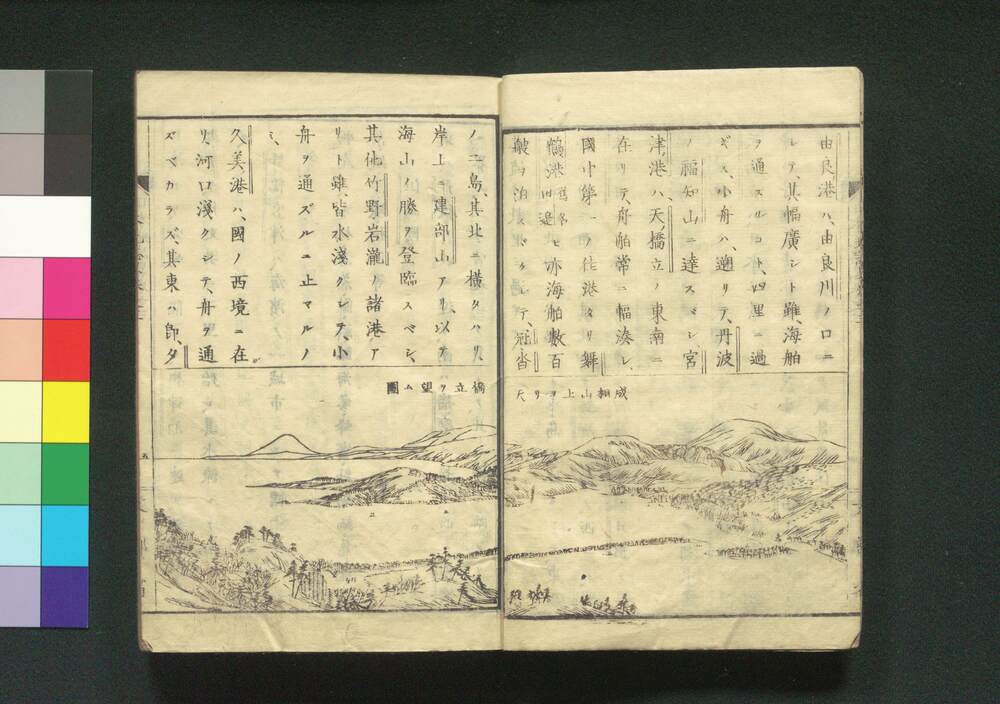 由良港ハ、由良川ノ口ニ
シテ、其幅廣シト雖、海舶
ヲ通スルコト、四里ニ過
ギズ、小舟ハ、遡リテ、丹波
ノ福知山ニ達スベシ、宮
津港ハ、天ノ橋立ノ東南ニ
在リテ、舟舶常ニ輻湊シ、
國中第一ノ佳港タリ、舞
鶴港 舊名田邊 モ亦海舶數百
艘ヲ泊スベクシテ、冠沓
成相山上ヨリ天
ノ二島、其北ニ橫タハリ、
岸上ニ建部山アリ、以テ
海山ノ勝ヲ登臨スベシ、
其他竹野岩瀧ノ諸港ア
リト雖、皆水淺クシテ、小
舟ヲ通ズルニ止マルノ
ミ、
久美港ハ、國ノ西境ニ在
リ、河口淺クシテ、舟ヲ通
ズベカラズ、其東ハ即、夕
橋立ヲ望ム圖